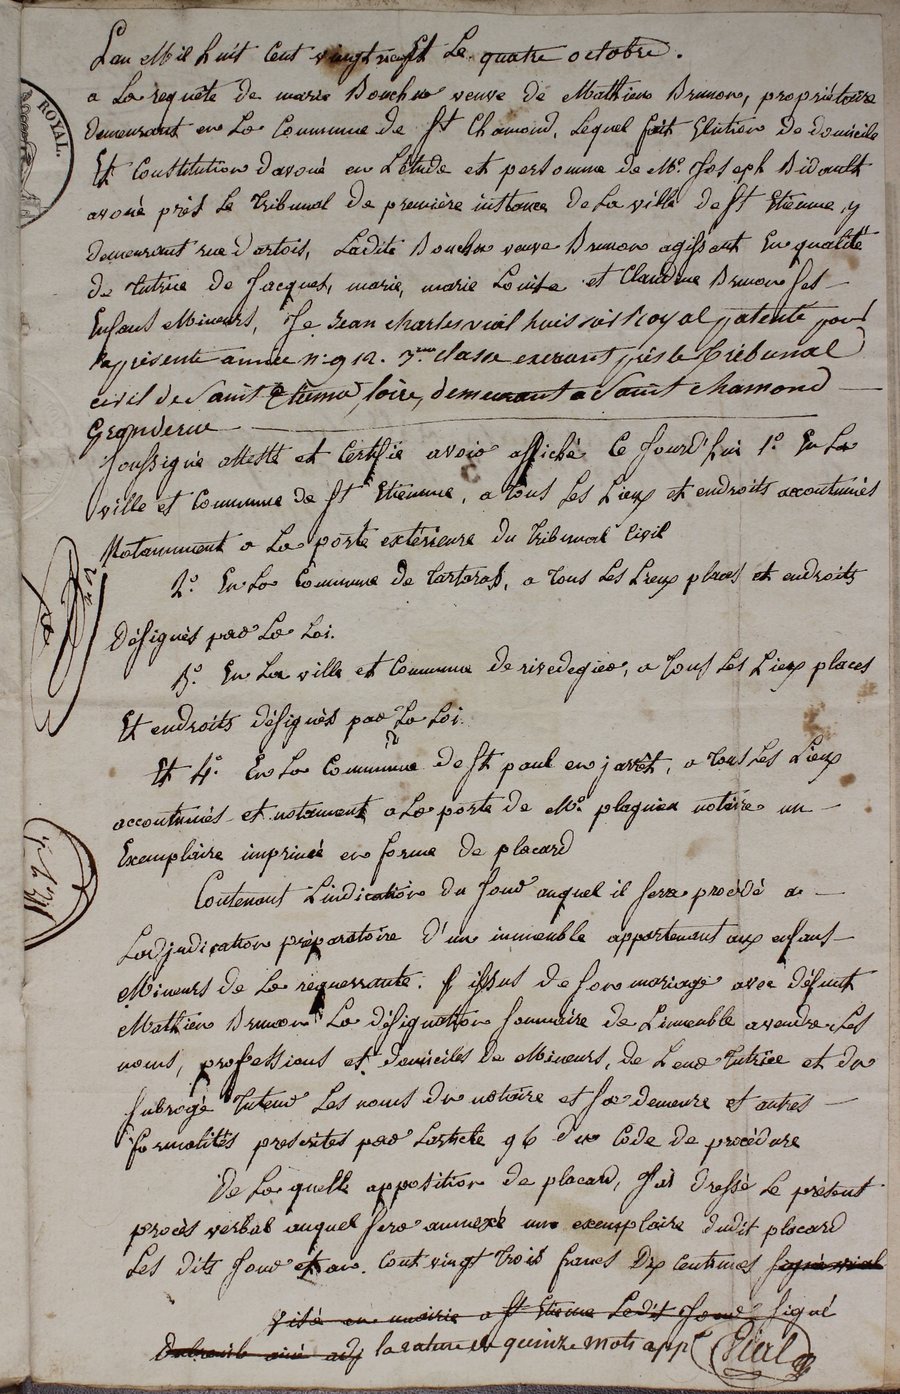 L'an Mil huit Cent vingt sept Le quatre octobre.
ROYAL.
a La requête de marie Bouchu veuve de Mathieu Brunon, propriétaire
demeurant en La Commune de St Chamond, Lequel fait Election de domicile
Et Constitution d'avoué en L'étude et personne de Me. Joseph Bidault
avoué près Le Tribunal de première instance de La ville de St Etienne, y
demeurant rue d'artois, Ladite Bouchu veuve Brunon agissant En qualité
de tutrice de Jacques, marie, marie Louise et Claudine Brunon Ses
Enfans Mineurs, Je Jean charles vial huissier Royal patenté pour
la présente année n: 912. 7me classe exerçant près le Tribunal
civil de Saint Etienne, Loire, demeurant a Saint chamond
Grande rue
Soussigné atteste et Certifie avoir affiché Ce Jourd'hui 1o. En La
ville et Commune de St Etienne, a tous Les Lieux et endroits accoutumés
Notamment a La porte extérieure du tribunal Civil
2o. En La Commune de Tartaras, a tous Les Lieux places et endroits
Désignés par La Loi.
3o. En La ville et Commune de rivedegier, a tous Les Lieux places
Et endroits désignés par La Loi.
Et 4o. En La Commune de St paul en jarrêt, a tous Les Lieux
accoutumés et notament a La porte de Me. plagnieu notaire un
Exemplaire imprimé en forme de placard
Contenant L'indication du Jour auquel il Sera procédé a
L'adjudication préparatoire d'un immeuble appartenant aux enfans
Mineurs de La requerrante. issus de Son mariage avec défunt
Mathieu Brunon La désignation Sommaire de L'immeuble a vendre Les
noms, professions et domiciles de Mineurs, de Leur tutrice et du
Subrogé tuteur Les noms du notaire et Sa demeure et autres
formalités prescrites par L'article 96 du Code de procédure
De La quelle apposition de placard, J'ai dressé Le présent
procès verbal auquel Sera annexé un exemplaire dudit placard
Les dits Jour et an. Cout vingt trois francs Dix Centimes signé vial
visé en mairie a St Etienne Ledit Jour Signé
Dubreuil ainé adj la rature de quinze mots appe Vial